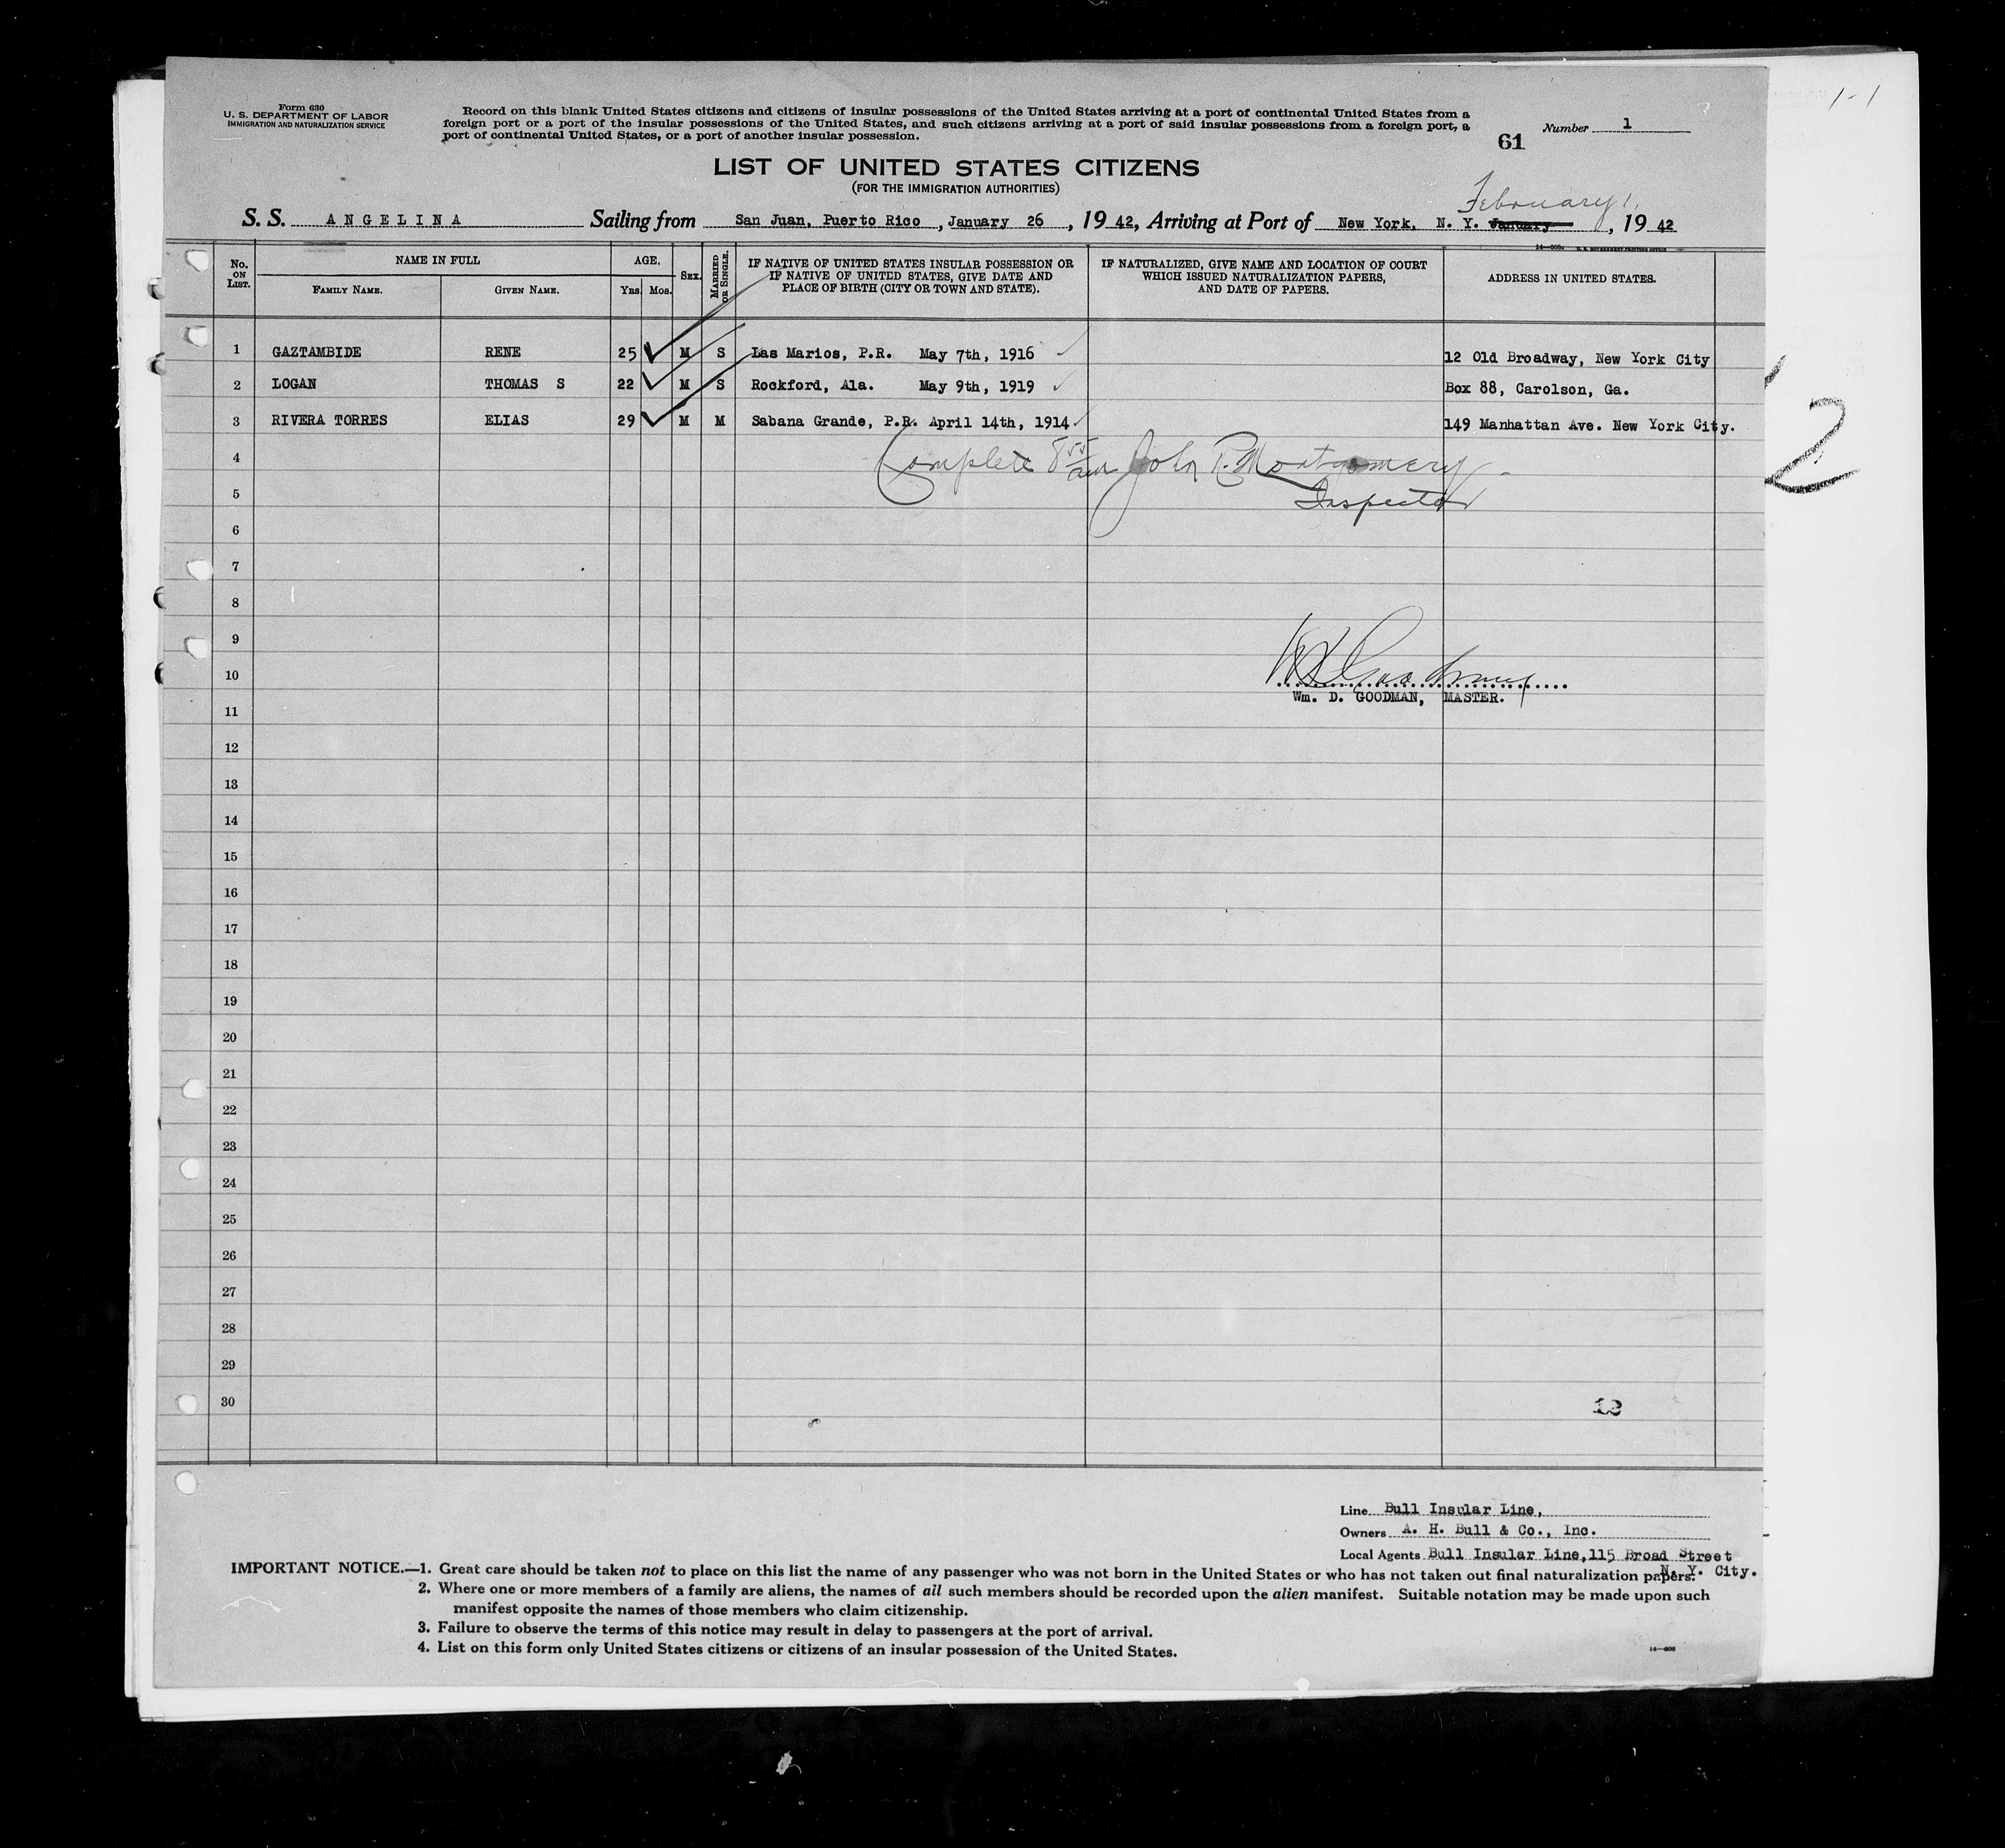 1-1
Form 630
U. S. DEPARTMENT OF LABOR
IMMIGRATION AND NATURALIZATION SERVICE
Record on this blank United States citizens and citizens of insular possessions of the United States arriving at a port of continental United States from a
foreign port or a port of the insular possessions of the United States, and such citizens arriving at a port of said insular possessions from a foreign port, a
port of continental United States, or a port of another insular possession.
61
Number 1
LIST OF UNITED STATES CITIZENS
(FOR THE IMMIGRATION AUTHORITIES)
February 1,
S. S. ANGELINA Sailing from San Juan, Puerto Rico, January 26, 1942, Arriving at Port of New York, N. Y. January, 1942
No. ON LIST. NAME IN FULL AGE. SEX. MARRIED OR SINGLE. IF NATIVE OF UNITED STATES INSULAR POSSESSION OR IF NATIVE OF UNITED STATES, GIVE DATE AND PLACE OF BIRTH (CITY OR TOWN AND STATE). IF NATURALIZED, GIVE NAME AND LOCATION OF COURT WHICH ISSUED NATURALIZATION PAPERS, AND DATE OF PAPERS. ADDRESS IN UNITED STATES.
FAMILY NAME. GIVEN NAME. YRS. MOS.
1 GAZTAMBIDE RENE 25 M S Las Marios, P.R. May 7th, 1916 12 Old Broadway, New York City
2 LOGAN THOMAS S 22 M S Rockford, Ala. May 9th, 1919 Box 88, Carolson, Ga.
3 RIVERA TORRES ELIAS 29 M M Sabana Grande, P.R. April 14th, 1914 149 Manhattan Ave. New York City.
2
4 Complete 8 55 am John R. Montgomery
5 Inspector
6
7
8
9
10
Wm. D. GOODMAN, MASTER.
11
12
13
14
15
16
17
18
19
20
21
22
23
24
25
26
27
28
29
30
12
Line Bull Insular Line,
Owners A. H. Bull & Co., Inc.
Local Agents Bull Insular Line, 115 Broad Street
N. Y. City.
IMPORTANT NOTICE.—1. Great care should be taken not to place on this list the name of any passenger who was not born in the United States or who has not taken out final naturalization papers.
2. Where one or more members of a family are aliens, the names of all such members should be recorded upon the alien manifest. Suitable notation may be made upon such
manifest opposite the names of those members who claim citizenship.
3. Failure to observe the terms of this notice may result in delay to passengers at the port of arrival.
4. List on this form only United States citizens or citizens of an insular possession of the United States.